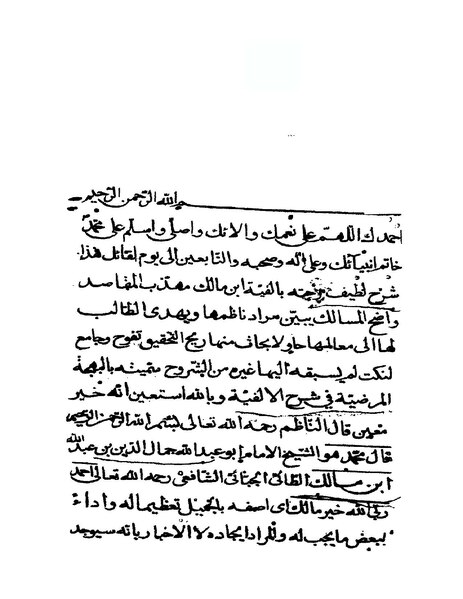 بسم الله الرحمن الرحيم
احمدك اللهم على نعمك والائك واصلي واسلم على محمد
خاتم انبيائك وعلى اله وصحبه والتابعين الى يوم لقائك هذا
شرح لطيف مزجته بالفية ابن مالك مهذب المقاصد
واضح المسالك يبين مراد ناظمها ويهدى الطالب
لها الى معالمها حاو لابحاث منها ريح التحقيق تفوح وجامع
لنكت لم يسبقه اليها غيره من الشروح سميته بالبهجة
المرضية في شرح الالفية وبالله استعين انه خير
معين قال الناظم رحمه الله تعالى بسم الله الرحمن الرحيم
قال محمد هو الشيخ الامام ابو عبد الله جمال الدين بن عبد الله
ابن مالك الطائي الجياني الشافعي رحمه الله تعالى احمد
ربي الله خير مالك اي اصفه بالجميل تعظيما له واداء
لبعض ما يجب له والمراد ايجاده لا الاخبار بانه سيوجد